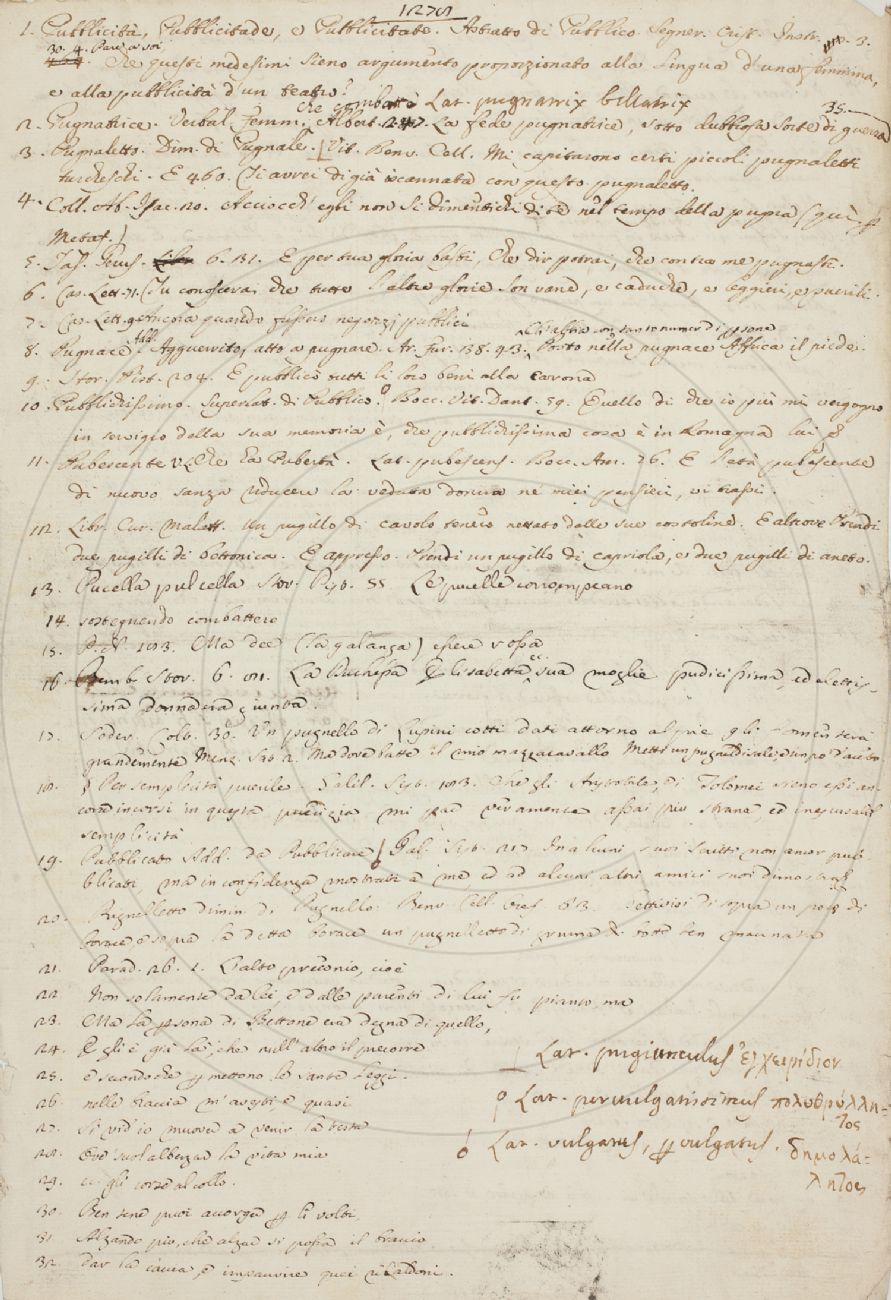 1278
1. Pubblicità, Pubblicitade, e Pubblicitate. Astratto di Pubblico. Segner. Crist. Instr. 3.
30. 4. Pare a voi,
che questi medesimi sieno argumento proporzionato alla lingua d'una femmina,
e alla pubblicità d'un teatro?
che combatte Lat. pugnatrix bellatrix
2. Pugnatrice. Verbal. Femm. Albert. 247. La fede pugnatrice, sotto dubbiosa sorte di guerra 35.
3. Pugnaletto. Dim. di Pugnale. Vit. Benv. Cell. Mi capitarono certi piccoli pugnaletti
turcheschi. E 460. Ti avrei di già iscannata con questo pugnaletto.
4. Coll. Ab. Isac. 20. Acciocch' egli non si dimentichi di te nel tempo della pugna (quì p
Metaf.)
5. Tass. Gerus. 6. 131. E per tua gloria basti, Che dir potrai, che contra me pugnasti.
6. Cas. Lett. 71. Tu conoscerai che tutte l'altre glorie son vane, e caduche, e leggieri, e puerili.
7. Cas. Lett. 9. Ancora quando fussero negozj pubblici
Ch'assai con tanto numer di persone
8. Pugnace Add. Agguerrito, atto a pugnare. Ar. Fur. 138. 43. Posto nella pugnace Affrica il piede.
9. Stor. Pist. 204. E pubblicò tutti li loro beni alla Corona
10. Pubblichissimo. Superlat. di Pubblico. Bocc. Vit. Dant. 59. Quello di che io più mi vergogno
in servigio della sua memoria è, che pubblichissima cosa è in Romagna lui
11. Pubescente Che ha Pubertà. Lat. pubescens. Bocc. Am. 76. E l'età pubescente
di nuovo sanza riducere la veduta donna ne' miei pensieri, vi trassi.
112. Libr. Cur. Malatt. Un pugillo di cavolo tenero nettato dalle sue costoline. E altrove Prendi
due pugilli di bettonica. E appresso. Prendi un pugillo di capriola, e due pugilli di aneto.
13. Pucella pulcella Stor. Pist. 55 Le pucelle corrompeano
14. sostegnendo combattere
15. P. N. 103. Ma dee (la galanga) essere rossa
16. Bemb. Stor. 6. 81. La Duchessa Elisabetta sua moglie pudicissima, ed elettis-
sima donna era giunta.
17. Soder. Colt. 30. Un pugnello di Lupini cotti dati attorno al piè gli aumenterà
grandemente Menz. Sat. 2. Ma dove batte il mio mazzacavallo Metti un pugnel di sale, e un po' d'aceto
18. Per semplicità puerile. Galil. Sist. 103. Che gli Aristoteli, e i Tolomei sieno essi an-
cora incorsi in questa puerizia mi par veramente assai pur strana, ed inescusabil
semplicità
19. Pubblicato Add. da Pubblicare Gal. Sist. 217 In alcuni suoi scritti non ancor pub-
blicati, ma in confidenza mostrati a me, ed ad alcuni altri amici suoi dimostra
20. Pugnelletto dimin. di Pugnello. Benv. Cell. Oref. 83. Mettivisi di sopra un poco di
borace, e sopra la detta borace un pugnelletto di gruma di botte ben macinata
21. Parad. 26. 1. L'alto preconio, cioè
22. Non solamente da lei, e dalle parenti di lui fu pianto, ma
23. Ma la psona di Bettone era degna di quello,
24. Egli è già là, che null'altro il precorre
25. e secondo che p mettono le sante Leggi.
26. nelle braccia m'avesti e quasi
27. Si vid'io muover a venir la testa
28. Ove suol alberzar la vita mia
29. e gli corse al collo.
30. Ben sene può accorger li volti
31. Alzando più, che alzar si possa il braccio
32. dar la caccia, e impaurire quei ribaldoni.
Lat. pugiunculus ἐγχειρίδιον
Lat. pervulgatissimus πολυθρύλλη-
τος
Lat. vulgatus, pvulgatus. δημολά-
λητος